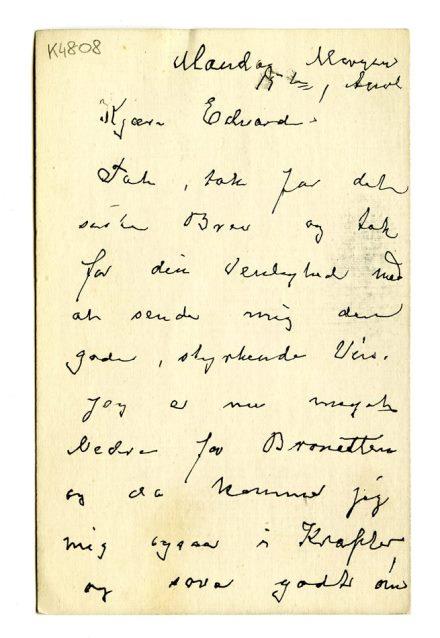 K4808
Mandag Morgen
April
Kjære Edvard.
Tak, tak for det
sidste Brev og tak
for din Venlighed med
at sende mig den
gode, styrkende Vin.
Jeg er nu meget
bedre for Bronchitten
og da kommer jeg
mig ogsaa i Kræfter
og sove godt om